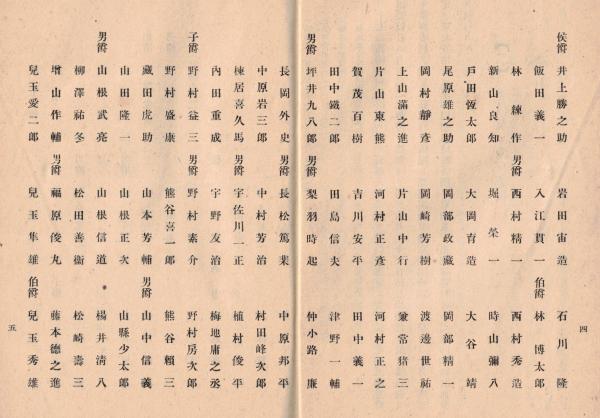 侯爵 井上勝之助 岩田宙造 石川隆
飯田義一 入江貫一 伯爵 林博太郎
林練作 男爵 西村精一 西村秀造
新山良知 堀榮一 時山彌八
戸田恆太郎 大岡育造 大谷靖
尾原雄之助 岡部政藏 岡部精一
岡村靜彦 岡崎芳樹 渡邊世祐
上山滿之進 片山中行 兼常猪三
片山東熊 河村正彦 河村正之
賀茂百樹 吉川安平 田中義一
田中鐵二郎 田島信夫 津野一輔
男爵 坪井九八郎 男爵 梨羽時起 仲小路廉
四
長岡外史 男爵 長松篤棐 中原邦平
中原岩三郎 中村芳治 村田峰次郎
男爵 棟居喜久馬 男爵 宇佐川一正 植村俊平
內田重成 宇野友治 梅地庸之丞
子爵 野村益三 男爵 野村素介 野村房次郎
野村盛康 熊谷喜一郎 熊谷賴三
藏田虎助 山本芳輔 男爵 山中信義
山田隆一 山根正次 山縣少太郎
男爵 山根武亮 山根信道 楊井淸八
柳澤祐冬 松田善衞 松崎壽三
增山作輔 男爵 福原俊丸 藤本德之進
兒玉愛二郎 兒玉隼雄 伯爵 兒玉秀雄
五